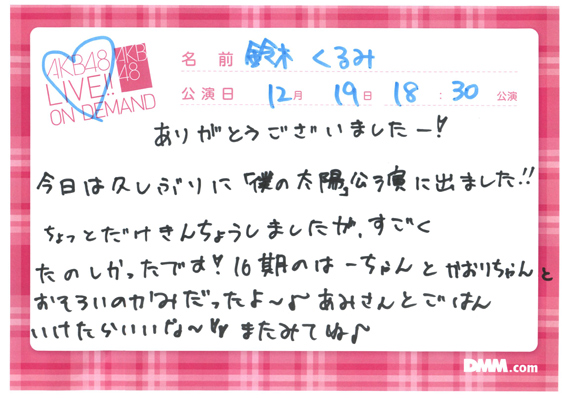 AKB48
LIVE!!
ON DEMAND
AKB
48
名前 鈴木くるみ
公演日 12月 19日 18:30 公演
ありがとうございましたー!
今日は久しぶりに「僕の太陽」公演に出ました!!
ちょっとだけきんちょうしましたが、すごく
たのしかったです! 16期のはーちゃんとかおりちゃんと
おそろいのかみだったよ〜♪ あみさんとごはん
いけたらいいな〜♡ またみてね♪
DMM.com